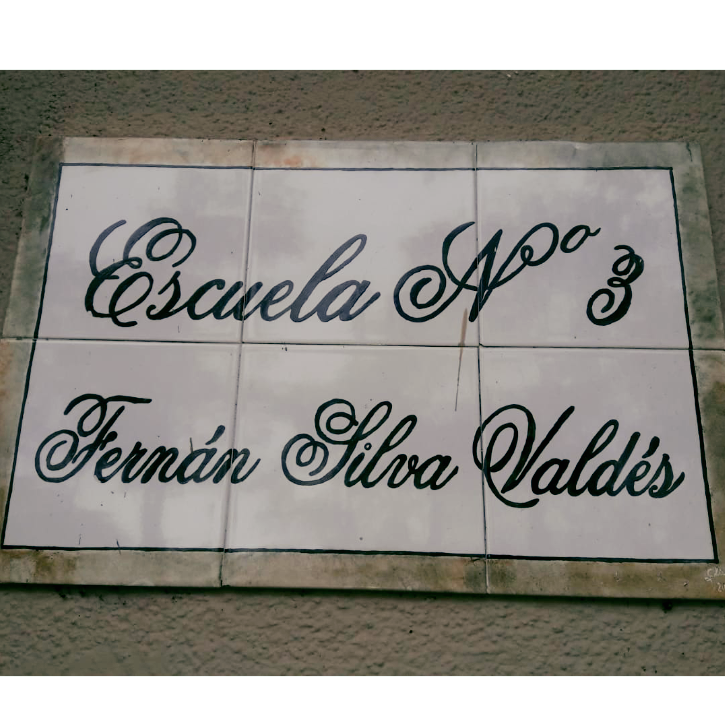 Escuela Nº 3
Fernán Silva Valdés